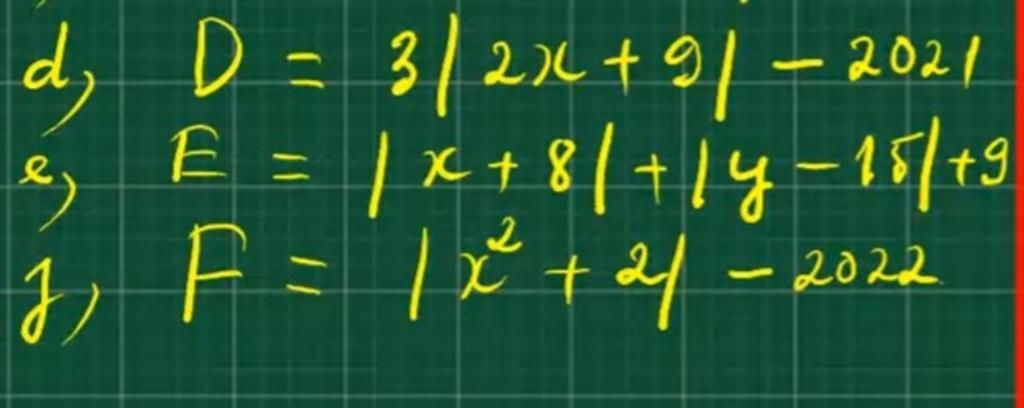 d, D = 3|2x + 9| - 2021
e, E = |x + 8| + |y - 15| + 9
f, F = |x² + 2| - 2022